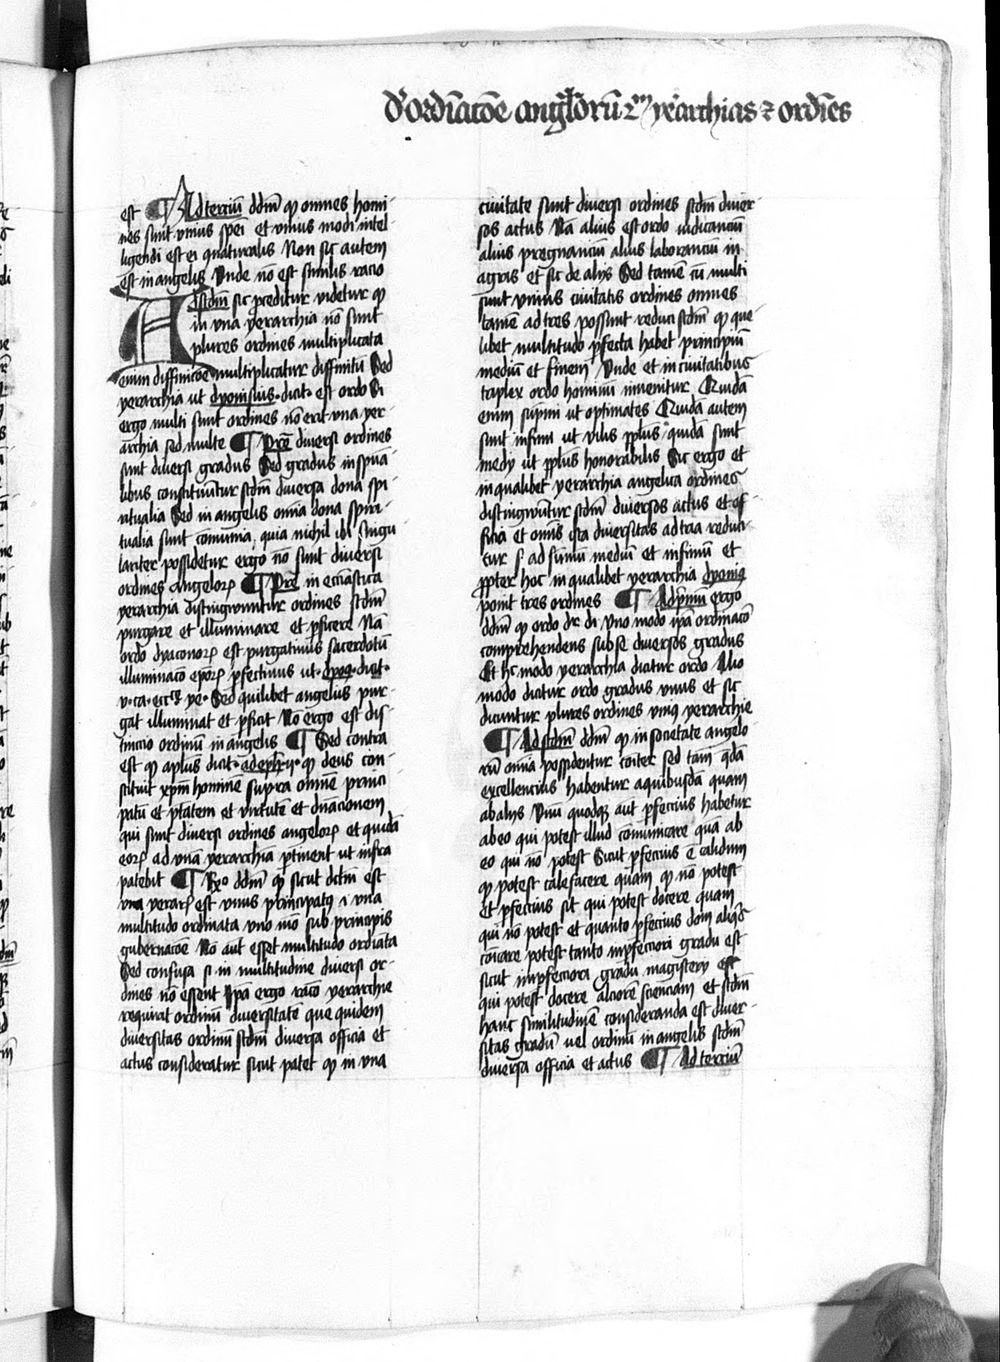 dˀ ordīacōe angl̄orū ẜm yerarchias ⁊ ordīes
est ¶ Ad terciū ddm̄ ꝙ omnes homi-
nes sunt vnius spēi et vnius modi intel-
ligendi est eī naturalis Non sic autem
est in angelis Vnde nō est similis racio
Ad scd̄m sic proceditur videtur ꝙ
in vna yerarchia nō sunt
plures ordines multiplicata
enim diffinicōe multiplicatur diffinitū Sed
yerarchia ut dyonisius dicit est ordo Si
ergo multi sunt ordines nō erit vna yer-
archia sed multe ¶ Pret̄ diuersi ordines
sunt diuersi gradus Sed gradus in spūa-
libus constituūtur scdm̄ diuersa dona spi-
ritualia Sed in angelis omīa dona spiri-
tualia sunt cōmunia, quia nichil ibi singu
lariter possidetur ergo nō sunt diuersi
ordines angeloꝝ ¶ Pret̄ in eccīastica
yerarchia distingwuntur ordines scdm̄
purgare et illuminare et pficere Nā
ordo dyaconoꝝ est purgatiuus sacerdotū
illuminatō epōꝝ pfectiuus ut dyoꝰ dicit
v. ca. ecc̄e ye. Sed quilibet angelus pur-
gat illuminat et pficit Nō ergo est dis-
tinctio ordinū in angelis ¶ Sed contra
est ꝙ apl̄us dicit ad eph. j. ꝙ deus con-
stituit xp̄m hominē supra omnē princi
patū et ptātem et virtutē et dn̄acionem
qui sunt diuersi ordines angeloꝝ et quidā
eoꝝ ad vnā yerarchiā ptinent ut infra
patebit ¶ Rn̄o ddm̄ ꝙ sicut dc̄tm est
vna yerarᵃ est vnus principatꝰ i vna
multitudo ordinata vno mō sub principis
gubernacōe Nō aut̄ esset multitudo ordīata
Sed confusa si in multitudine diuersi or-
dines nō essent Ipā ergo racō yerarchie
requirit ordinū diuersitatē que quidem
diuersitas ordinū scdm̄ diuersa officia et
actus consideratur sicut patet ꝙ in vna
ciuitate sunt diuersi ordines scdm̄ diuer-
sos actus Nā alius est ordo iudicanciū
alius pregnanciū alius laboranciū in
agris et sic de alijs Sed tamē cū multi
sunt vnius ciuitatis ordines omnes
tamē ad tres possunt reduci scdm̄ ꝙ que
libet multitudo pfecta habet principiū
mediū et finem Vnde et in ciuitatibus
triplex ordo hominū inuenitur Quidā
enim sup̄mi ut optimates Quidā autem
sunt infimi ut vilis pplus quidā sunt
medij ut pplus honorabilis Sic ergo et
in qualibet yerarchia angelica ordines
distingwūtur scdm̄ diuersos actus et of
ficia et omīs ista diuersitas ad tria reduci-
tur s. ad sūmū mediū et infimū et
ppter hoc in qualibet yerarchia dyoniꝰ
ponit tres ordines ¶ Ad p̄mū ergo
ddm̄ ꝙ ordo dr̄ dr̄ Vno modo ipā ordinacō
comprehendens sub se diuersos gradus
Et hͦ modo yerarchia dicitur ordo Alio
modo dicitur ordo gradus vnus et sic
dicuntur plures ordines vniꝰ yerarchie
¶ Ad scdm̄ ddm̄ ꝙ in societate angelo
rū omīa possidentur cōiter sed tam̄ q̄dā
excellencius habentur a quibusdā quam
ab alijs Vnū quodqꝫ aut̄ pfectius habetur
ab eo qui potest illud cōmunicare quā ab
eo qui nō potest Sicut pfectius ē calidum
ꝙ potest calefacere quam ꝙ nō potest
Et pfectius sit qui potest docere quam
qui nō potest et quanto pfectius donū aliqͥs
cōicare potest tanto in pfectiori gradu est
sicut in pfectiori gradu magisterij est
qui potest docere alciorē scienciam et scdm̄
hanc similitudinē consideranda est diuer-
sitas graduū uel ordinū in angelis scdm̄
diuersa officia et actus ¶ Ad terciū